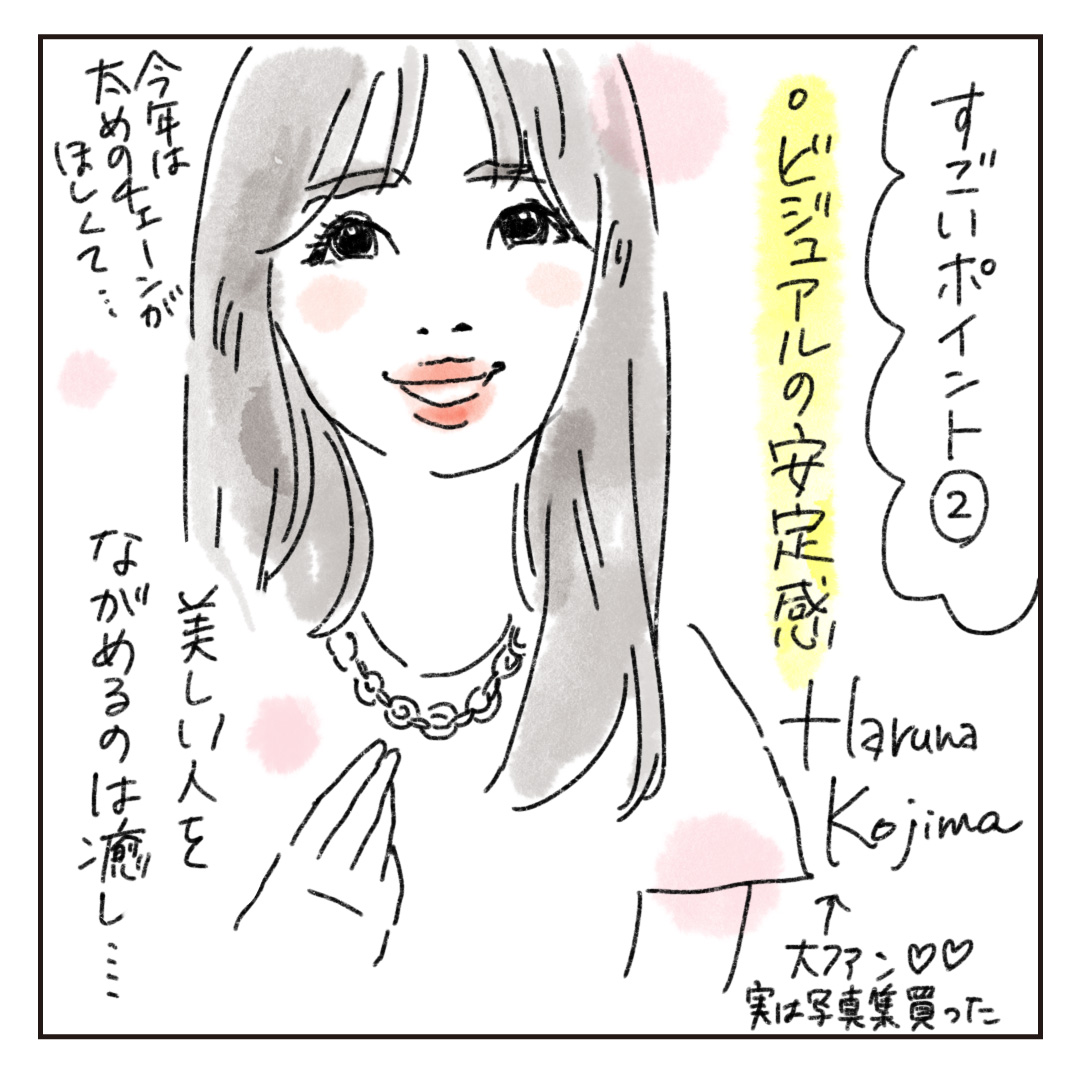 すごいポイント②
°ビジュアルの安定感
Haruna
Kojima
↑
大ファン♡♡
実は写真集買った
今年は
太めのチェーンが
ほしくて…
美しい人を
ながめるのは癒し……